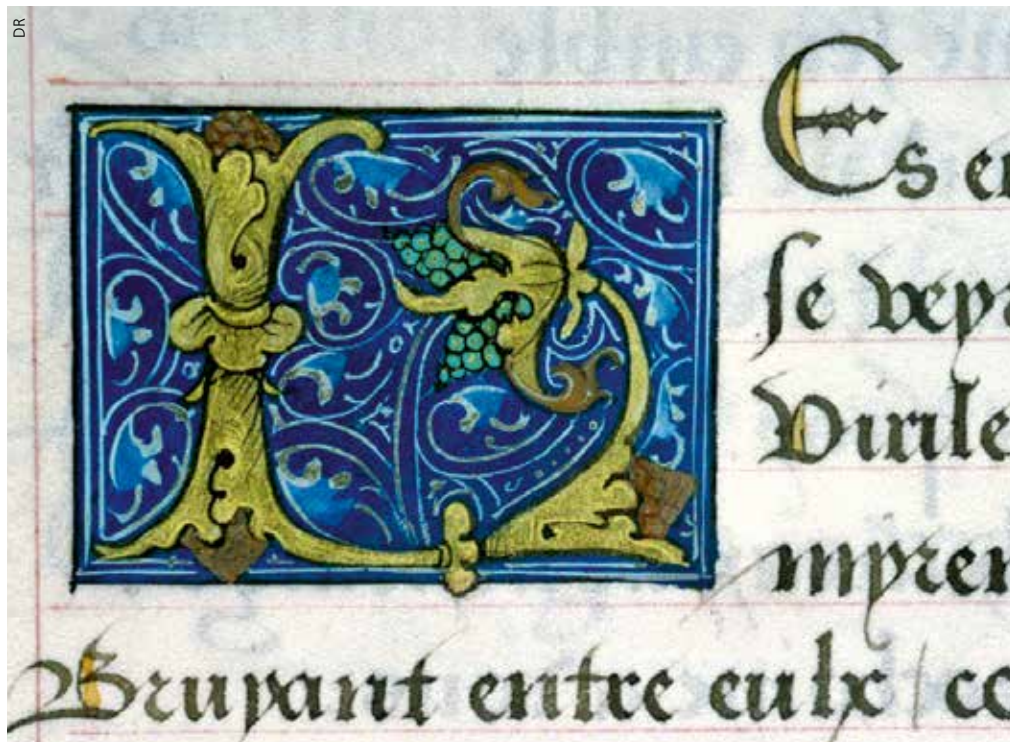 DR
LEs en
ſe veyr
Virile
mpren
Bruyant entre eulx / co